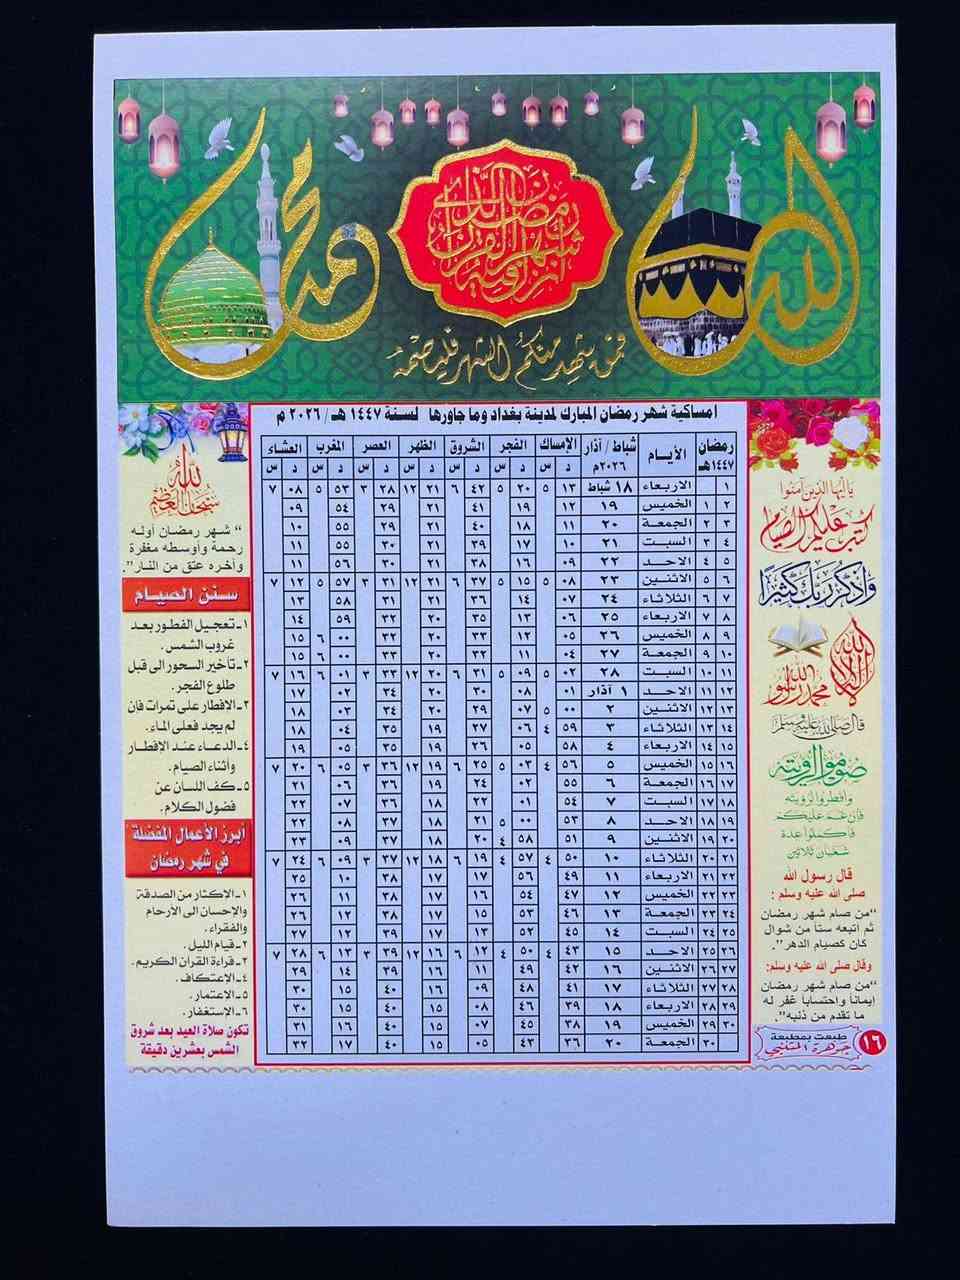 الله
محمد
شهر رمضان الذي أنزل فيه القرآن
فمن شهد منكم الشهر فليصمه
امساكية شهر رمضان المبارك لمدينة بغداد وما جاورها لسنة ١٤٤٧ هـ / ٢٠٢٦ م
رمضان ١٤٤٧هـ الأيـام شباط / آذار ٢٠٢٦م الإمساك الفجر الشروق الظهر العصر المغرب العشاء
د س د س د س د س د س د س د س
١ الاربعاء ١٨ شباط ١٣ ٥ ٢٠ ٥ ٤٢ ٦ ٢١ ١٢ ٢٨ ٣ ٥٣ ٥ ٠٨ ٧
٢ ١ الخميس ١٩ ١٢ ١٩ ٤١ ٢١ ٢٩ ٥٤ ٠٩
٣ ٢ الجمعة ٢٠ ١١ ١٨ ٤٠ ٢١ ٢٩ ٥٥ ١٠
٤ ٣ السبت ٢١ ١٠ ١٧ ٣٩ ٢١ ٣٠ ٥٥ ١١
٥ ٤ الاحد ٢٢ ٠٩ ١٦ ٣٨ ٢١ ٣٠ ٥٦ ١١
٦ ٥ الاثنين ٢٣ ٠٨ ٥ ١٥ ٥ ٣٧ ٦ ٢١ ١٢ ٣١ ٣ ٥٧ ٥ ١٢ ٧
٧ ٦ الثلاثاء ٢٤ ٠٧ ١٤ ٣٦ ٢١ ٣١ ٥٨ ١٣
٨ ٧ الاربعاء ٢٥ ٠٦ ١٣ ٣٥ ٢٠ ٣٢ ٥٩ ١٤
٩ ٨ الخميس ٢٦ ٠٥ ١٢ ٣٣ ٢٠ ٣٢ ٠٠ ٦ ١٥
١٠ ٩ الجمعة ٢٧ ٠٤ ١١ ٣٢ ٢٠ ٣٣ ٠٠ ١٥
١١ ١٠ السبت ٢٨ ٠٢ ٥ ٠٩ ٥ ٣١ ٦ ٢٠ ١٢ ٣٣ ٣ ٠١ ٦ ١٦ ٧
١٢ ١١ الاحد ١ آذار ٠١ ٠٨ ٣٠ ٢٠ ٣٤ ٠٢ ١٧
١٣ ١٢ الاثنين ٢ ٠٠ ٥ ٠٧ ٢٩ ٢٠ ٣٤ ٠٣ ١٨
١٤ ١٣ الثلاثاء ٣ ٥٩ ٤ ٠٦ ٢٧ ١٩ ٣٥ ٠٤ ١٨
١٥ ١٤ الاربعاء ٤ ٥٨ ٠٥ ٢٦ ١٩ ٣٥ ٠٥ ١٩
١٦ ١٥ الخميس ٥ ٥٦ ٤ ٠٣ ٥ ٢٥ ٦ ١٩ ١٢ ٣٦ ٣ ٠٥ ٦ ٢٠ ٧
١٧ ١٦ الجمعة ٦ ٥٥ ٠٢ ٢٤ ١٩ ٣٦ ٠٦ ٢١
١٨ ١٧ السبت ٧ ٥٤ ٠١ ٢٢ ١٨ ٣٦ ٠٧ ٢٢
١٩ ١٨ الاحد ٨ ٥٣ ٠٠ ٥ ٢١ ١٨ ٣٧ ٠٨ ٢٢
٢٠ ١٩ الاثنين ٩ ٥١ ٥٨ ٤ ٢٠ ١٨ ٣٧ ٠٩ ٢٣
٢١ ٢٠ الثلاثاء ١٠ ٥٠ ٤ ٥٧ ٤ ١٩ ٦ ١٨ ١٢ ٣٧ ٣ ٠٩ ٦ ٢٤ ٧
٢٢ ٢١ الاربعاء ١١ ٤٩ ٥٦ ١٧ ١٧ ٣٨ ١٠ ٢٥
٢٣ ٢٢ الخميس ١٢ ٤٧ ٥٤ ١٦ ١٧ ٣٨ ١١ ٢٦
٢٤ ٢٣ الجمعة ١٣ ٤٦ ٥٣ ١٥ ١٧ ٣٨ ١٢ ٢٦
٢٥ ٢٤ السبت ١٤ ٤٥ ٥٢ ١٣ ١٧ ٣٨ ١٢ ٢٧
٢٦ ٢٥ الاحد ١٥ ٤٣ ٤ ٥٠ ٤ ١٢ ٦ ١٦ ١٢ ٣٩ ٣ ١٣ ٦ ٢٨ ٧
٢٧ ٢٦ الاثنين ١٦ ٤٢ ٤٩ ١١ ١٦ ٣٩ ١٤ ٢٩
٢٨ ٢٧ الثلاثاء ١٧ ٤١ ٤٨ ٠٩ ١٦ ٤٠ ١٥ ٣٠
٢٩ ٢٨ الاربعاء ١٨ ٣٩ ٤٦ ٠٨ ١٥ ٤٠ ١٥ ٣٠
٣٠ ٢٩ الخميس ١٩ ٣٨ ٤٥ ٠٧ ١٥ ٤٠ ١٦ ٣١
٣٠ الجمعة ٢٠ ٣٦ ٤٣ ٠٥ ١٥ ٤٠ ١٧ ٣٢
يا أيها الذين آمنوا
كتب عليكم الصيام
واذكر ربك كثيرا
لا إله إلا الله
محمد رسول الله
قال صلى الله عليه وسلم
صوموا لرؤيته
وأفطروا لرؤيته
فإن غم عليكم
فأكملوا عدة
شعبان ثلاثين
قال رسول الله
صلى الله عليه وسلم :
"من صام شهر رمضان
ثم اتبعه ستاً من شوال
كان كصيام الدهر".
وقال صلى الله عليه وسلم:
"من صام شهر رمضان
إيماناً واحتساباً غفر له
ما تقدم من ذنبه".
طبعت بمطبعة
جوهرة المتنبي
١٦
سبحان الله العظيم
" شهر رمضان أوله
رحمة وأوسطه مغفرة
وأخره عتق من النار".
سنن الصيام
١- تعجيل الفطور بعد
غروب الشمس.
٢- تأخير السحور الى قبل
طلوع الفجر.
٣- الافطار على تمرات فان
لم يجد فعلى الماء.
٤- الدعاء عند الإفطار
وأثناء الصيام.
٥- كف اللسان عن
فضول الكلام.
أبرز الأعمال المفضلة
في شهر رمضان
١- الإكثار من الصدقة
والإحسان الى الأرحام
والفقراء.
٢- قيام الليل.
٣- قراءة القرآن الكريم.
٤- الإعتكاف.
٥- الاعتمار.
٦- الإستغفار.
تكون صلاة العيد بعد شروق
الشمس بعشرين دقيقة